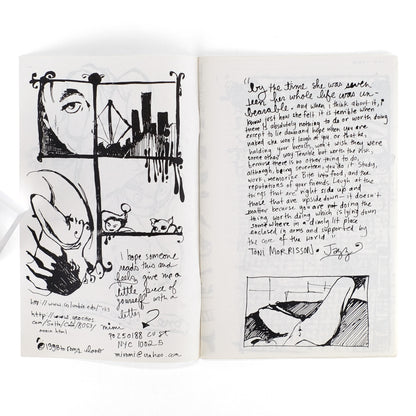 I hope someone
reads this and
feels give me a
little piece of
yourself with a
letter
http://www.columbia.edu/
http://www.geocities
com/SoHo/Cafe/8053/
main.html
mimi
PO 250188 CU ST
NYC 10025
mimomi@yahoo.com
"by the time she was seven
teen her whole life was un-
bearable. and when i think about it,
I know just how she felt. it is terrible when
there is absolutely nothing to do or worth doing
except to lie down and hope when you are
naked she won't laugh at you. or that he,
holding your breasts, won't wish they were
some other way. Terrible but worth the risk,
because there is no other thing to do,
although, being seventeen, you do it. Study,
work, memorize. Bite into food and the
reputations of your friends. Laugh at the
things that are right side up and
those that are upside down—it doesn't
matter because you are not doing the
thing worth doing which is lying down
somewhere in a dimly lit place
enclosed in arms and supported by
the core of the world.
TONI MORRISSON. Jazz